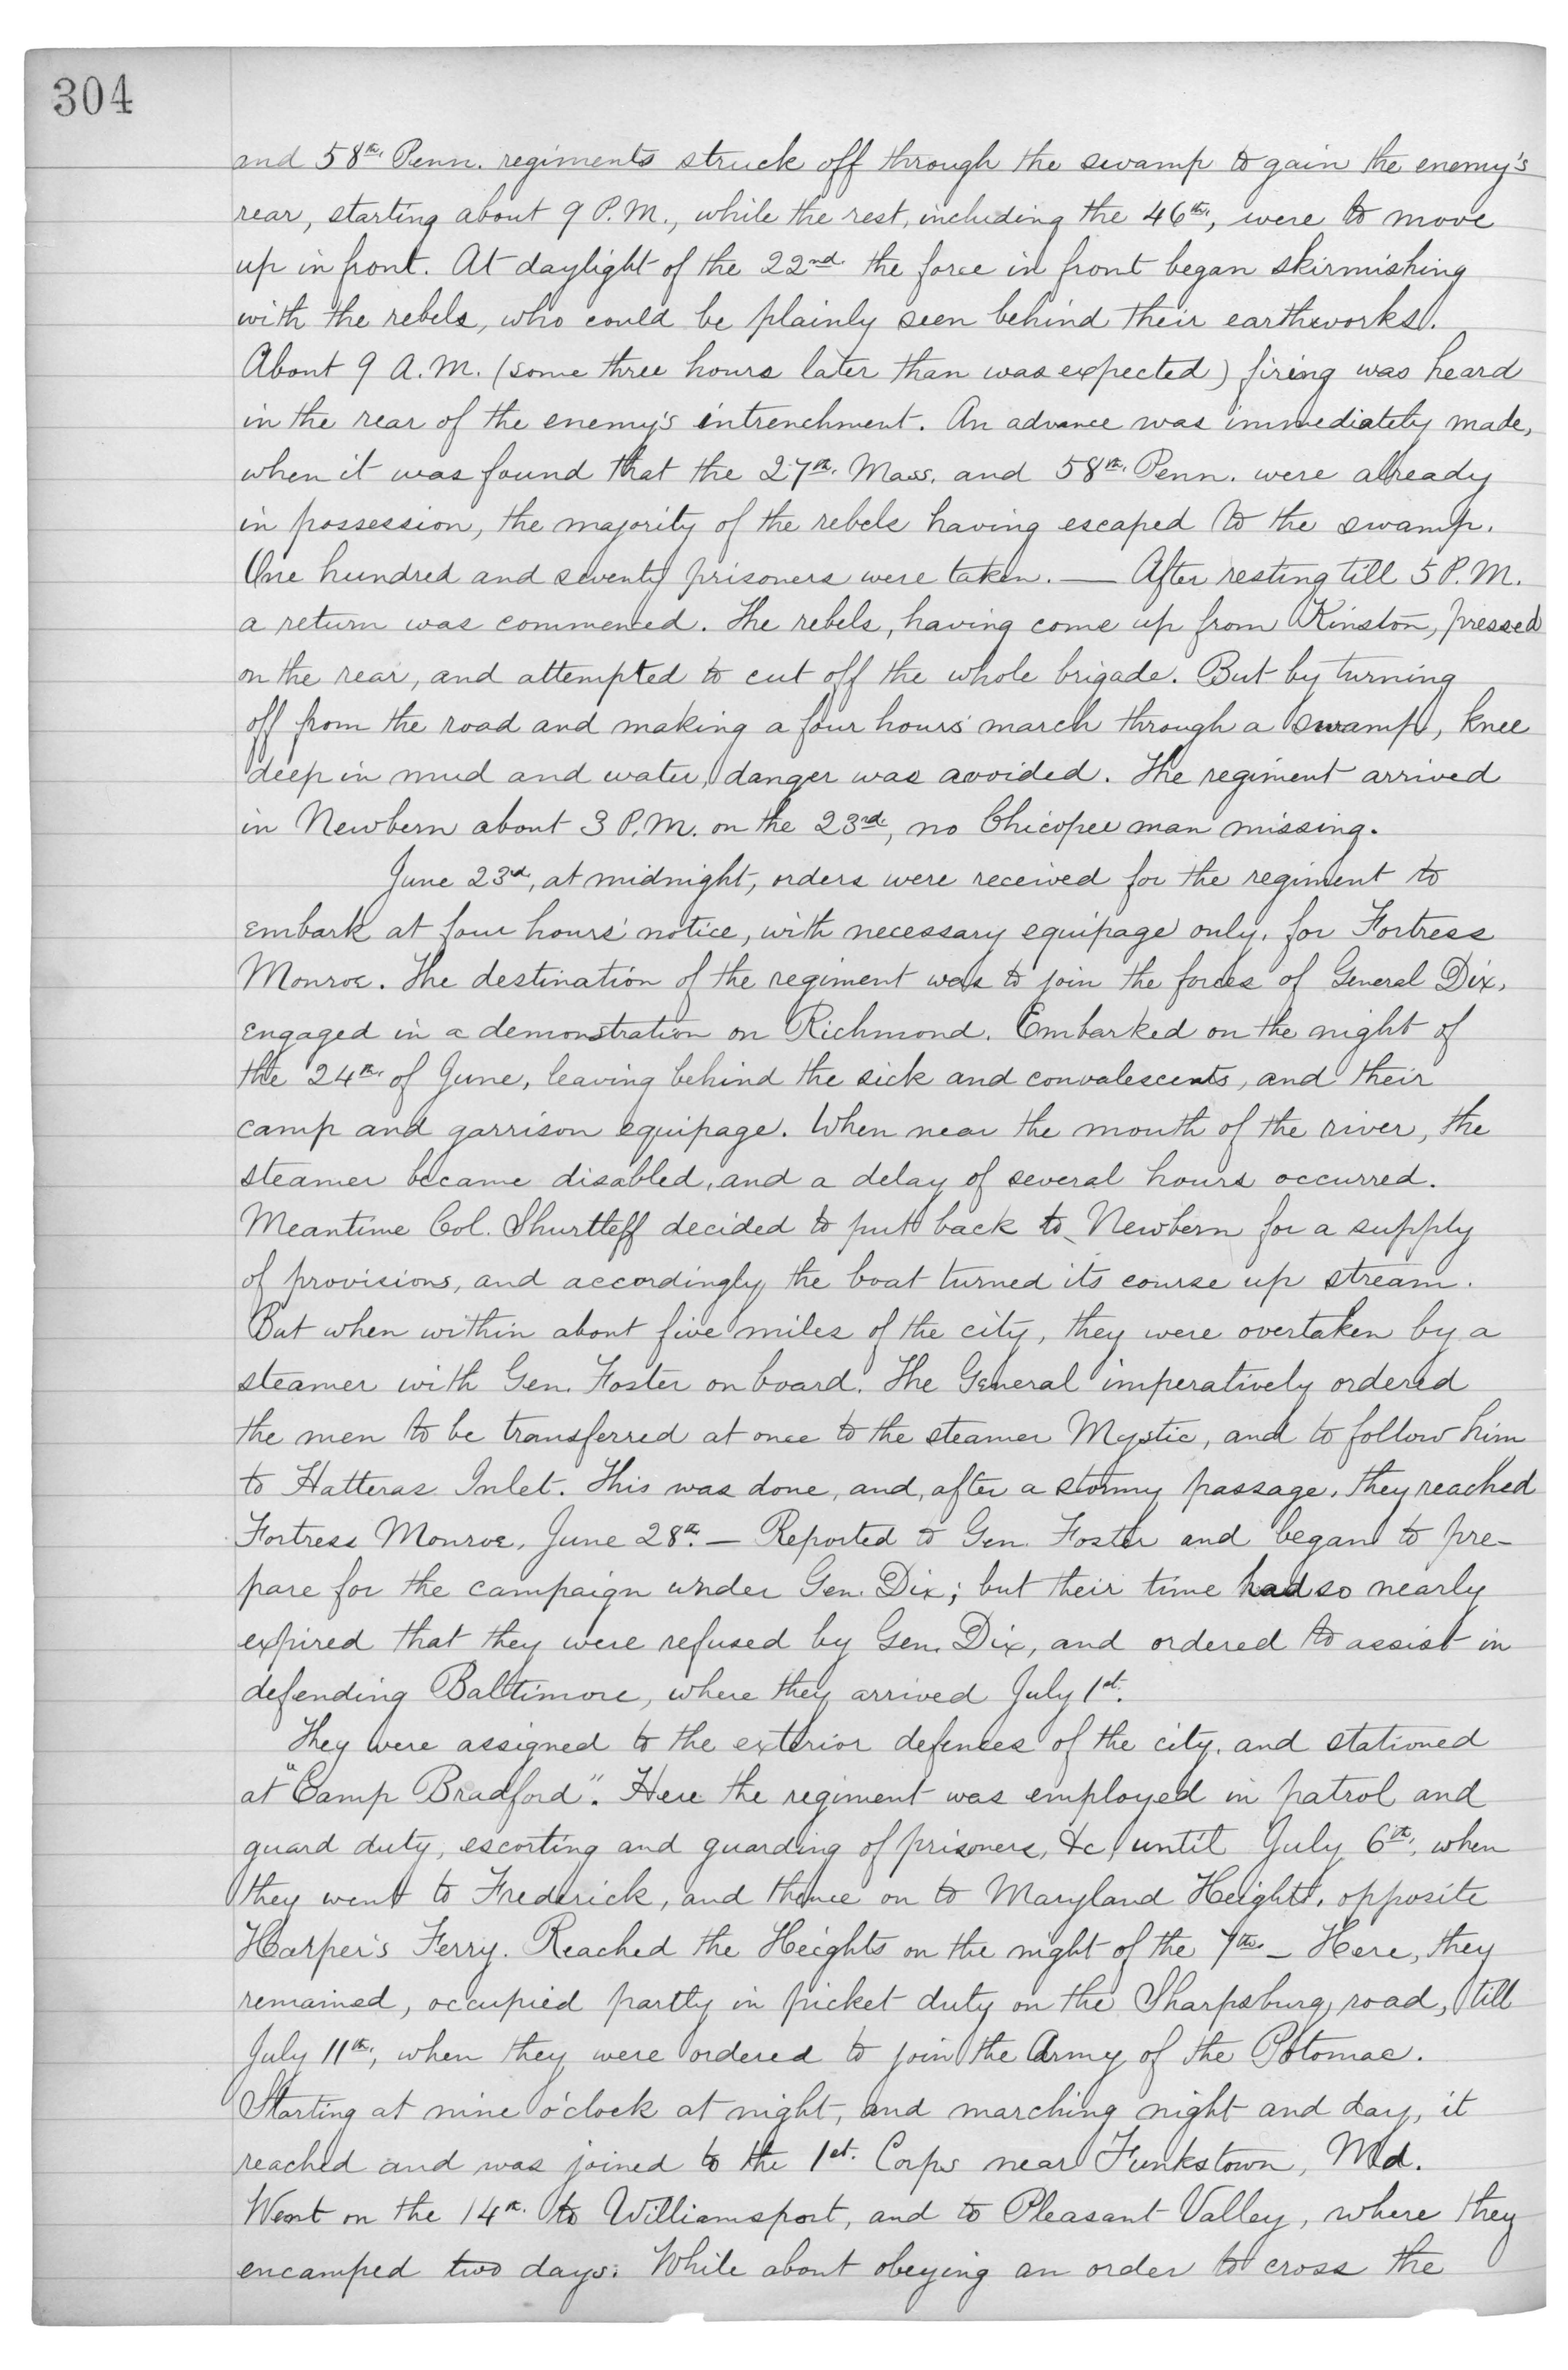 304
and 58th. Penn. regiments struck off through the swamp to gain the enemy's
rear, starting about 9 P.M., while the rest, including the 46th., were to move
up in front. At daylight of the 22nd. the force in front began skirmishing
with the rebels, who could be plainly seen behind their earthworks.
About 9 A.M. (some three hours later than was expected) firing was heard
in the rear of the enemy's intrenchment. An advance was immediately made,
when it was found that the 27th. Mass. and 58th. Penn. were already
in possession, the majority of the rebels having escaped to the swamp.
One hundred and seventy prisoners were taken. — After resting till 5 P.M.
a return was commenced. The rebels, having come up from Kinston, pressed
on the rear, and attempted to cut off the whole brigade. But by turning
off from the road and making a four hours' march through a swamp, knee
deep in mud and water, danger was avoided. The regiment arrived
in Newbern about 3 P.M. on the 23rd., no Chicopee man missing.
June 23d., at midnight, orders were received for the regiment to
embark at four hours' notice, with necessary equipage only, for Fortress
Monroe. The destination of the regiment was to join the forces of General Dix,
engaged in a demonstration on Richmond. Embarked on the night of
the 24th. of June, leaving behind the sick and convalescents, and their
camp and garrison equipage. When near the mouth of the river, the
steamer became disabled, and a delay of several hours occurred.
Meantime Col. Shurtleff decided to put back to Newbern for a supply
of provisions, and accordingly the boat turned its course up stream.
But when within about five miles of the city, they were overtaken by a
steamer with Gen. Foster on board. The General imperatively ordered
the men to be transferred at once to the steamer Mystic, and to follow him
to Hatteras Inlet. This was done, and, after a stormy passage, they reached
Fortress Monroe, June 28th. — Reported to Gen. Foster and began to pre-
pare for the campaign under Gen. Dix; but their time had so nearly
expired that they were refused by Gen. Dix, and ordered to assist in
defending Baltimore, where they arrived July 1st.
They were assigned to the exterior defences of the city, and stationed
at "Camp Bradford". Here the regiment was employed in patrol and
guard duty, escorting and guarding of prisoners, &c, until July 6th., when
they went to Frederick, and thence on to Maryland Heights, opposite
Harper's Ferry. Reached the Heights on the night of the 7th. — Here, they
remained, occupied partly in picket duty on the Sharpsburg road, till
July 11th., when they were ordered to join the Army of the Potomac.
Starting at nine o'clock at night, and marching night and day, it
reached and was joined to the 1st. Corps near Funkstown, Md.
Went on the 14th. to Williamsport, and to Pleasant Valley, where they
encamped two days. While about obeying an order to cross the